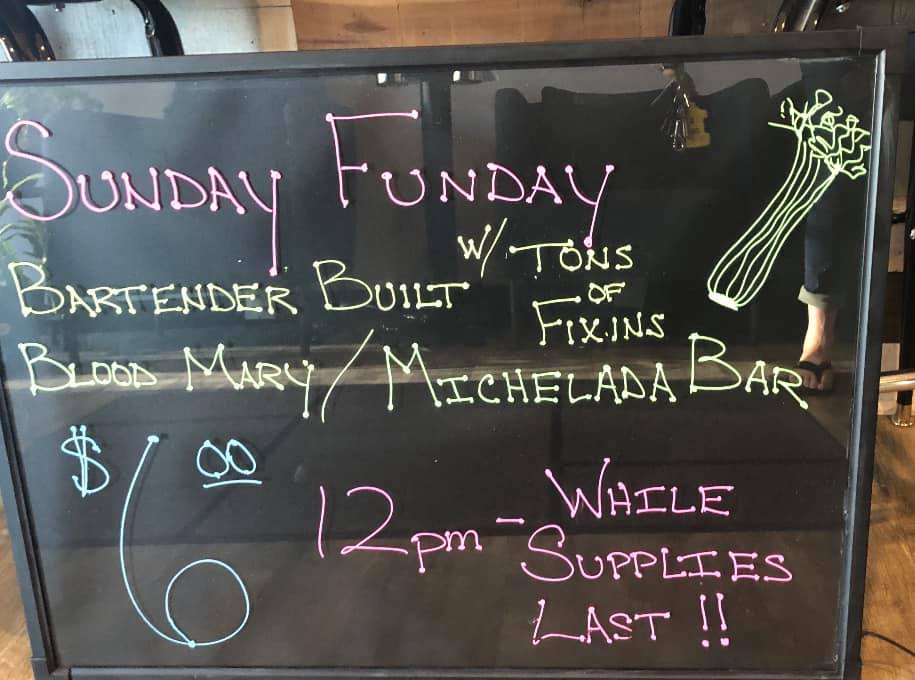 SUNDAY FUNDAY
BARTENDER BUILT W/ TONS
OF
FIXINS
BLOOD MARY / MICHELADA BAR
$6.00
12pm - WHILE
SUPPLIES
LAST !!